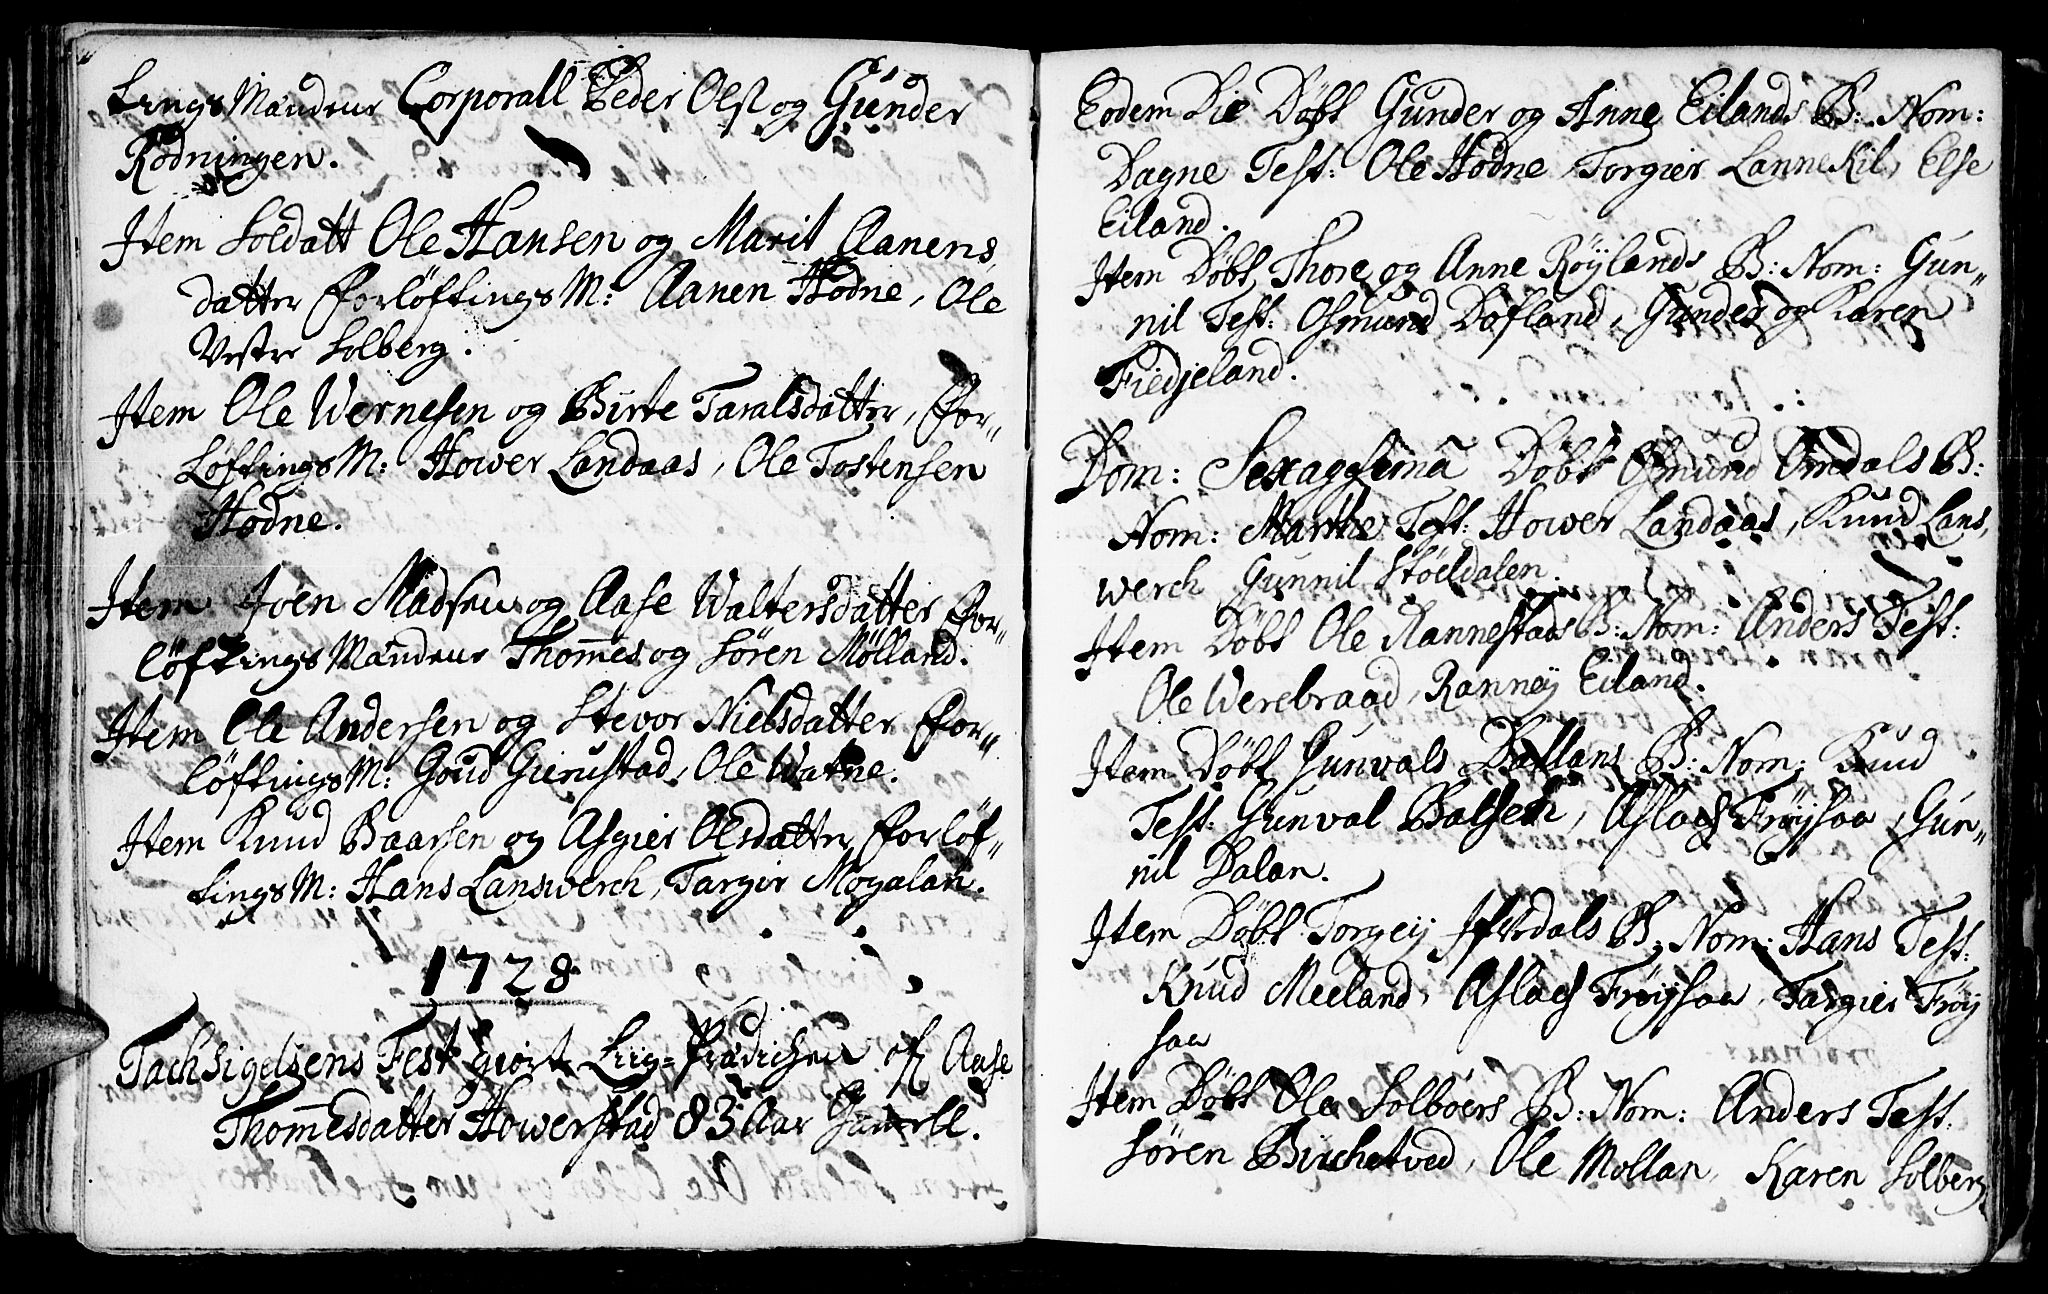 tings Mændene Corporall Peder Olss og Gunder
Rødningen.
Item Soldatt Ole Hansen og Marit Aanens
datter Forløftings M: Aanen Hodne, Ole
Vestre Solberg.
Item Ole Wernesen og Birte Taralsdatter, For-
Løftings M: Hower Landaas, Ole Tostensen
Hodne.
Item Joen Madsen og Aase Waltersdatter For-
løftings Mændene Thom̄es og Søren Mølland.
Item Ole Andersen og Stevor Nielsdatter For-
løftings M: Goud Gierustad, Ole Watne.
Item Knud Baarsen og Asgier Olsdatter Forløf-
tings M: Hans Lanswerch, Targir Mogalan.
1728
Tachsigelsens Fest giort Liig-Prædichen af Aase
Thom̄esdatter Howerstad 83 Aar Gam̄ell.
Eodem Die Døbt Gunder og Anne Eilands B: Nom:
Dagne Test: Ole Hodne, Torgier LanneKil, Else
Eiland.
Item Døbt Thore og Anne Røylands B: Nom: Gun-
nil Test: Osmund Dofland, Gunder og Karen
Fiedjeland.
Dom: Sexaggsima Døbt Osmund Omdals B:
Nom: Marthe Test: Hower Landaas, Knud Lans,
werch Gunnil Støeldalen.
Item Døbt Ole Rannestads B: Nom: Anders Test:
Ole Werebraad, Rannøy Eiland.
Item Døbt Gunvals Dallans B: Nom: Knud
Test: Gunval Balsen, Aslach Frøysaa, Gun-
nil Dalan.
Item Døbt Torgeij Ifverdals B: Nom: Hans Test:
Knud Meeland, Aslach Frøysaa, Targier Frøy
saa
Item Døbt Ole Solbøers B: Nom: Anders Test:
Søren Birchetved, Ole Mollan, Karen Solberg